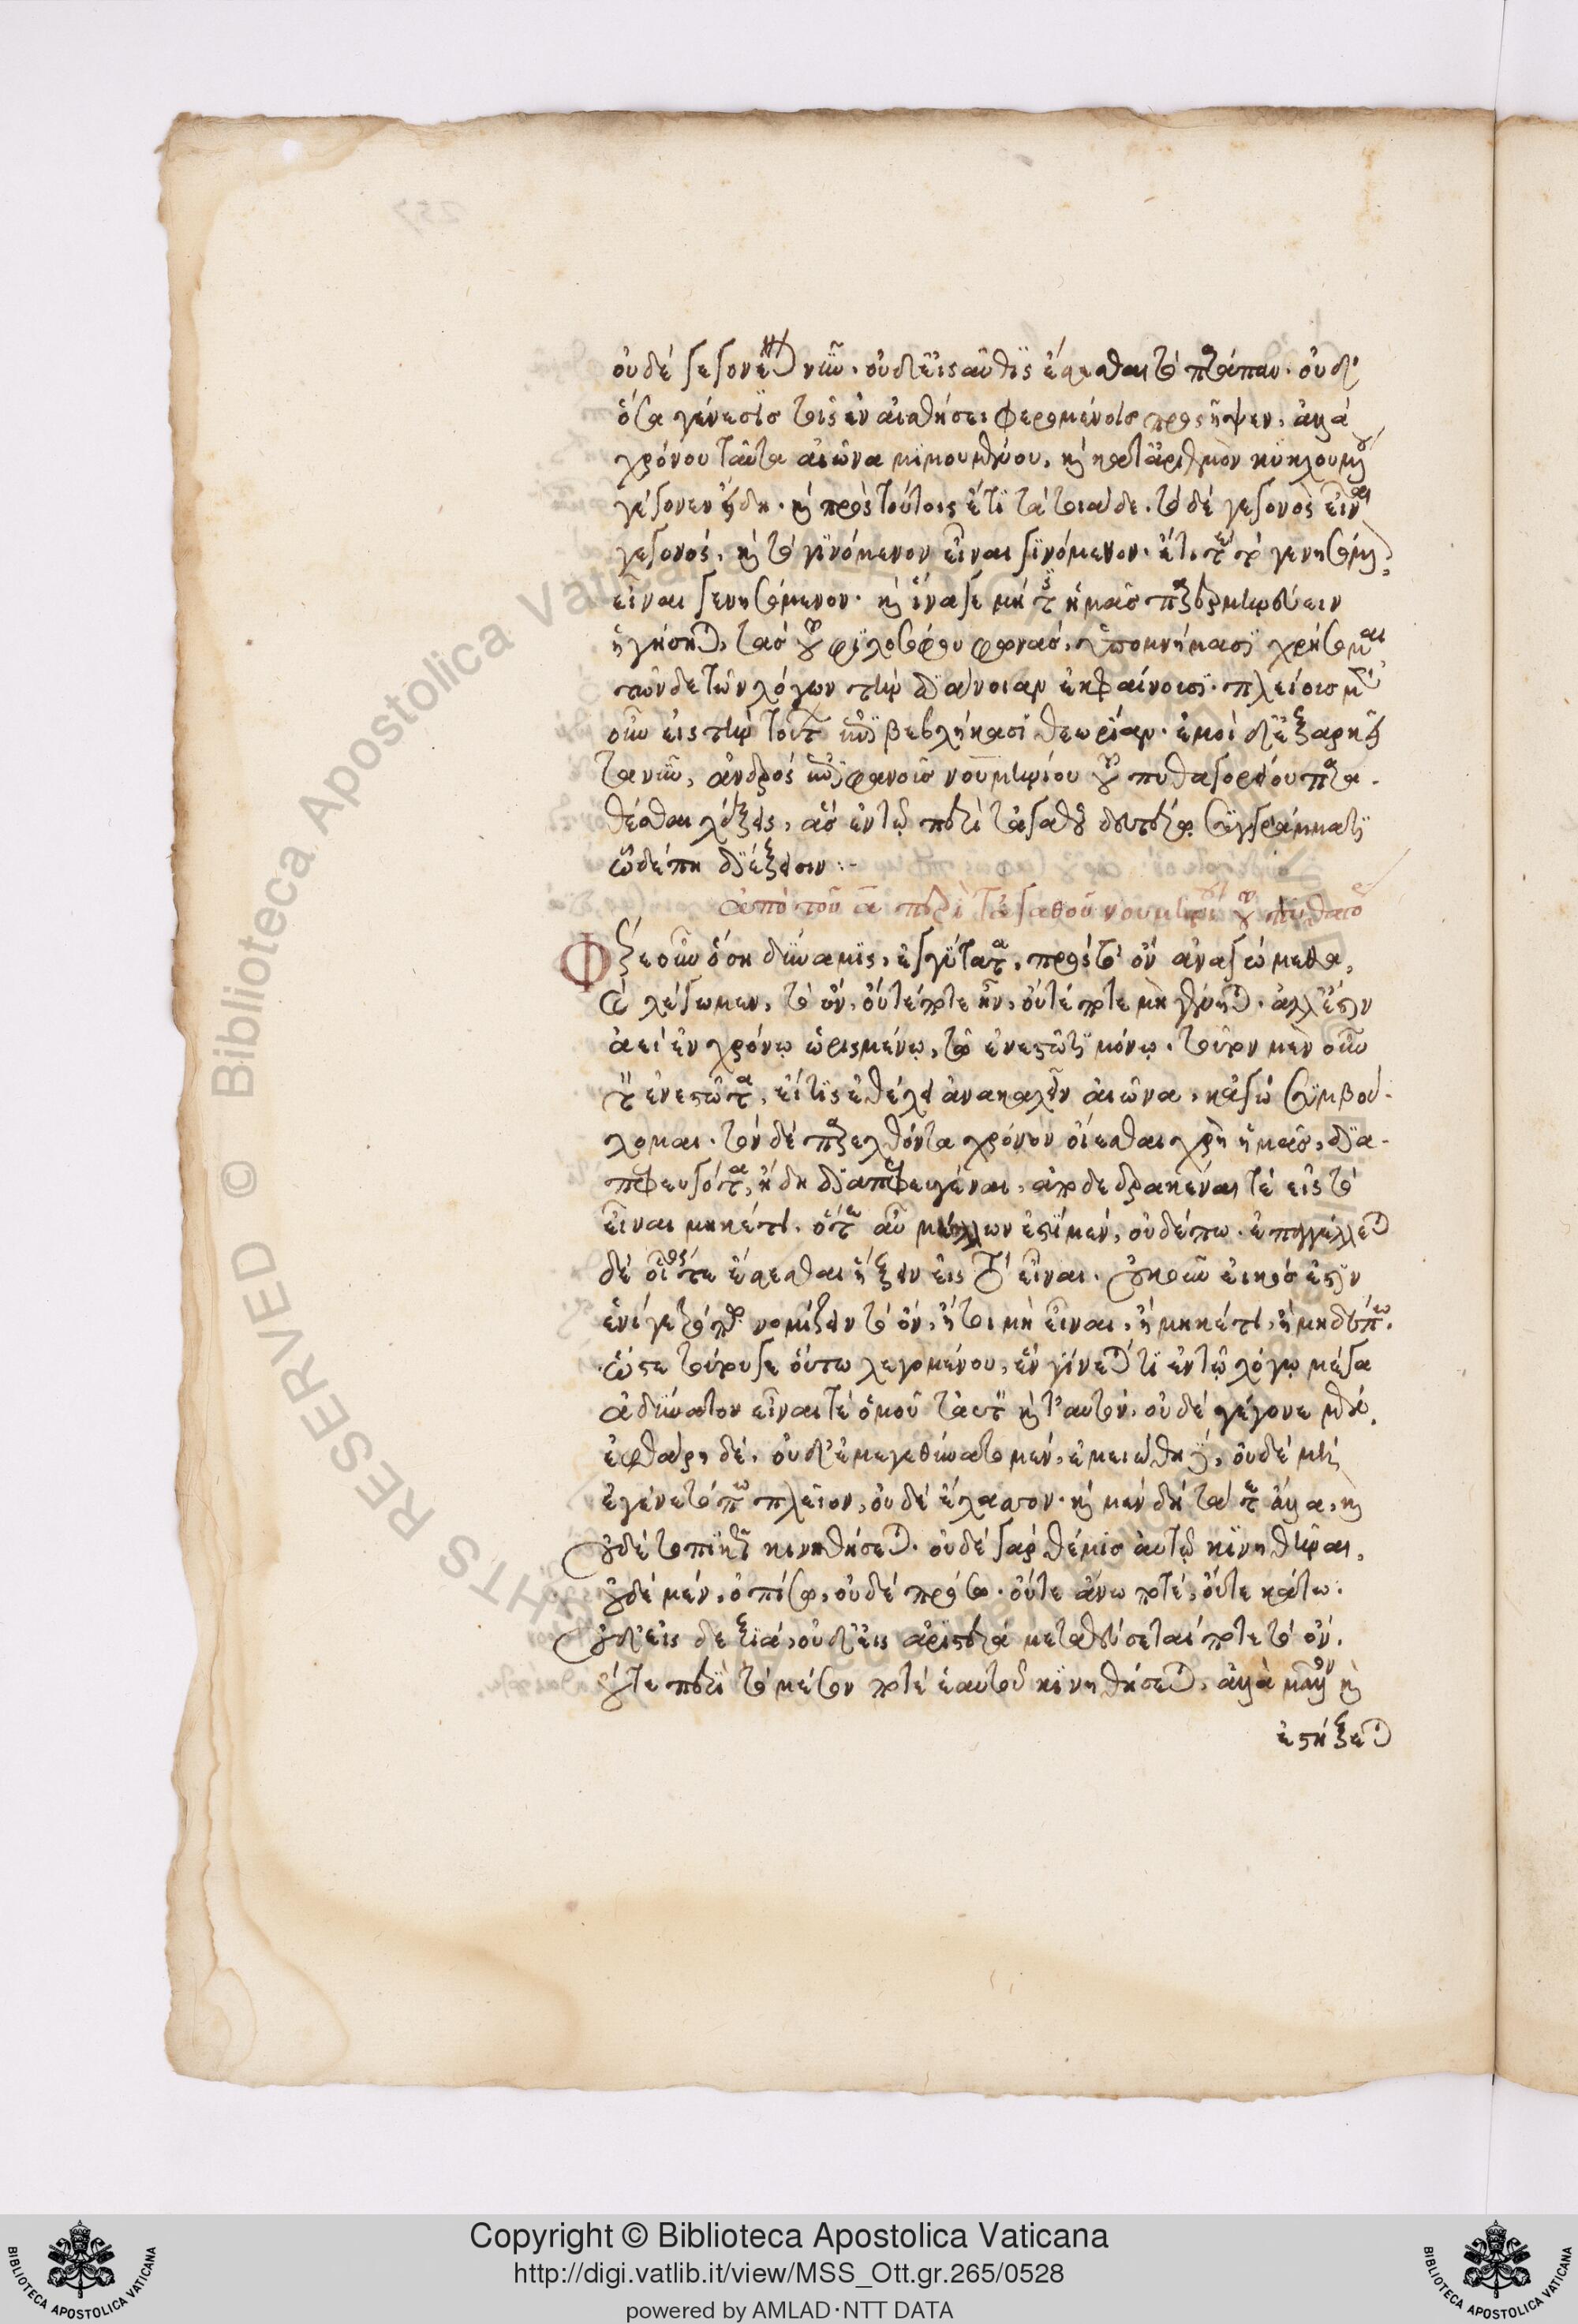 οὐδὲ γεγονέναι νῦν. οὐδ' εἰς αὖθις ἔσεσθαι τὸ παράπαν. οὐδ'
ὅσα γένεσις τοῖς ἐν αἰσθήσει φερομένοις προσῆψεν, ἀλλὰ
χρόνου ταῦτα αἰῶνα μιμουμένου, καὶ κατ' ἀριθμὸν κυκλουμένου
γέγονεν ἤδη. καὶ πρὸς τούτοις ἔτι τὰ τοιάδε. τὸ δὲ γεγονὸς εἶναι
γεγονός, καὶ τὸ γινόμενον εἶναι γινόμενον. ἔτι τε τὸ γενησόμενον
εἶναι γενησόμενον. καὶ ἵνα γε μή τις ἡμᾶς παρερμηνεύειν
ἡγήσηται, τὰς τοῦ φιλοσόφου φωνάς, ὑπομνήμασι χρήσομαι
τῶνδε τῶν λόγων τὴν διάνοιαν ἐκφαίνουσι. πλείους μὲν
οὖν εἰς τὴν τούτων βεβλήκασι θεωρίαν. ἐμοὶ δ' ἐξαρκεῖ
τανῦν, ἀνδρὸς ἐπιφανοῦς νουμηνίου τοῦ πυθαγορείου παρα-
θέσθαι λέξεις, ἃς ἐν τῷ περὶ τἀγαθοῦ δευτέρῳ συγγράμματι
ὧδέ πη διέξεισιν:-
ἀπὸ τοῦ α περὶ τἀγαθοῦ νουμηνίου τοῦ πυθαγο
Φέρε οὖν ὅση δύναμις, ἐγγύτατα, πρὸς τὸ ὂν ἀναγώμεθα,
καὶ λέγωμεν, τὸ ὄν, οὔτέ ποτε ἦν, οὔτέ ποτε μὴ γένηται. ἀλλ' ἔστιν
ἀεὶ ἐν χρόνῳ ὡρισμένῳ, τῷ ἐνεστῶτι μόνῳ. τοῦτον μὲν οὖν
τὸν ἐνεστῶτα, εἴ τις ἐθέλει ἀνακαλεῖν αἰῶνα, κἀγὼ συμβού-
λομαι. τὸν δὲ παρελθόντα χρόνον οἴεσθαι χρὴ ἡμᾶς, δια-
πεφευγότα, ἤδη διαπεφευγέναι, ἀποδεδρακέναι τὲ εἰς τὸ
εἶναι μηκέτι. ὅτε αὖ μέλλων ἐστὶ μέν, οὐδέπω. ἐπαγγέλλεται
δὲ οἷός τε ἔσεσθαι ἥξειν εἰς τὸ εἶναι. οὔκουν εἰκός ἐστιν
ἑνί γε τρόπῳ νομίζειν τὸ ὄν, ἤτοι μὴ εἶναι, ἢ μηκέτι, ἢ μηδέπω.
ὥστε τούτου γε οὕτω λεγομένου, ἓν γίνεταί τι ἐν τῷ λόγῳ μέγα
ἀδύνατον εἶναι τὲ ὁμοῦ ταὐτὸν καὶ τ' αὐτὸν, οὐδὲ γέγονε μέν,
ἐφθάρη δέ, οὐδ' ἐμεγεθύνατο μέν, ἐμειώθη δέ, οὐδὲ μὴν
ἐγένετό πω πλεῖον, οὐδὲ ἔλασσον. καὶ μὲν δὴ τά τε ἄλλα, καὶ
οὐδὲ τοπικῶς κινηθήσεται. οὐδὲ γὰρ θέμις αὐτῷ κινηθῆναι,
οὐδὲ μέν, ὀπίσω, οὐδὲ πρόσω. οὔτε ἄνω ποτέ, οὔτε κάτω.
οὐδ' εἰς δεξιά, οὐδ' εἰς ἀριστερά μεταθεύσεταί ποτε τὸ ὄν.
οὔτε περὶ τὸ μέσον ποτὲ ἑαυτοῦ κινηθήσεται, ἀλλὰ μᾶλλον καὶ
ἑστήξεται